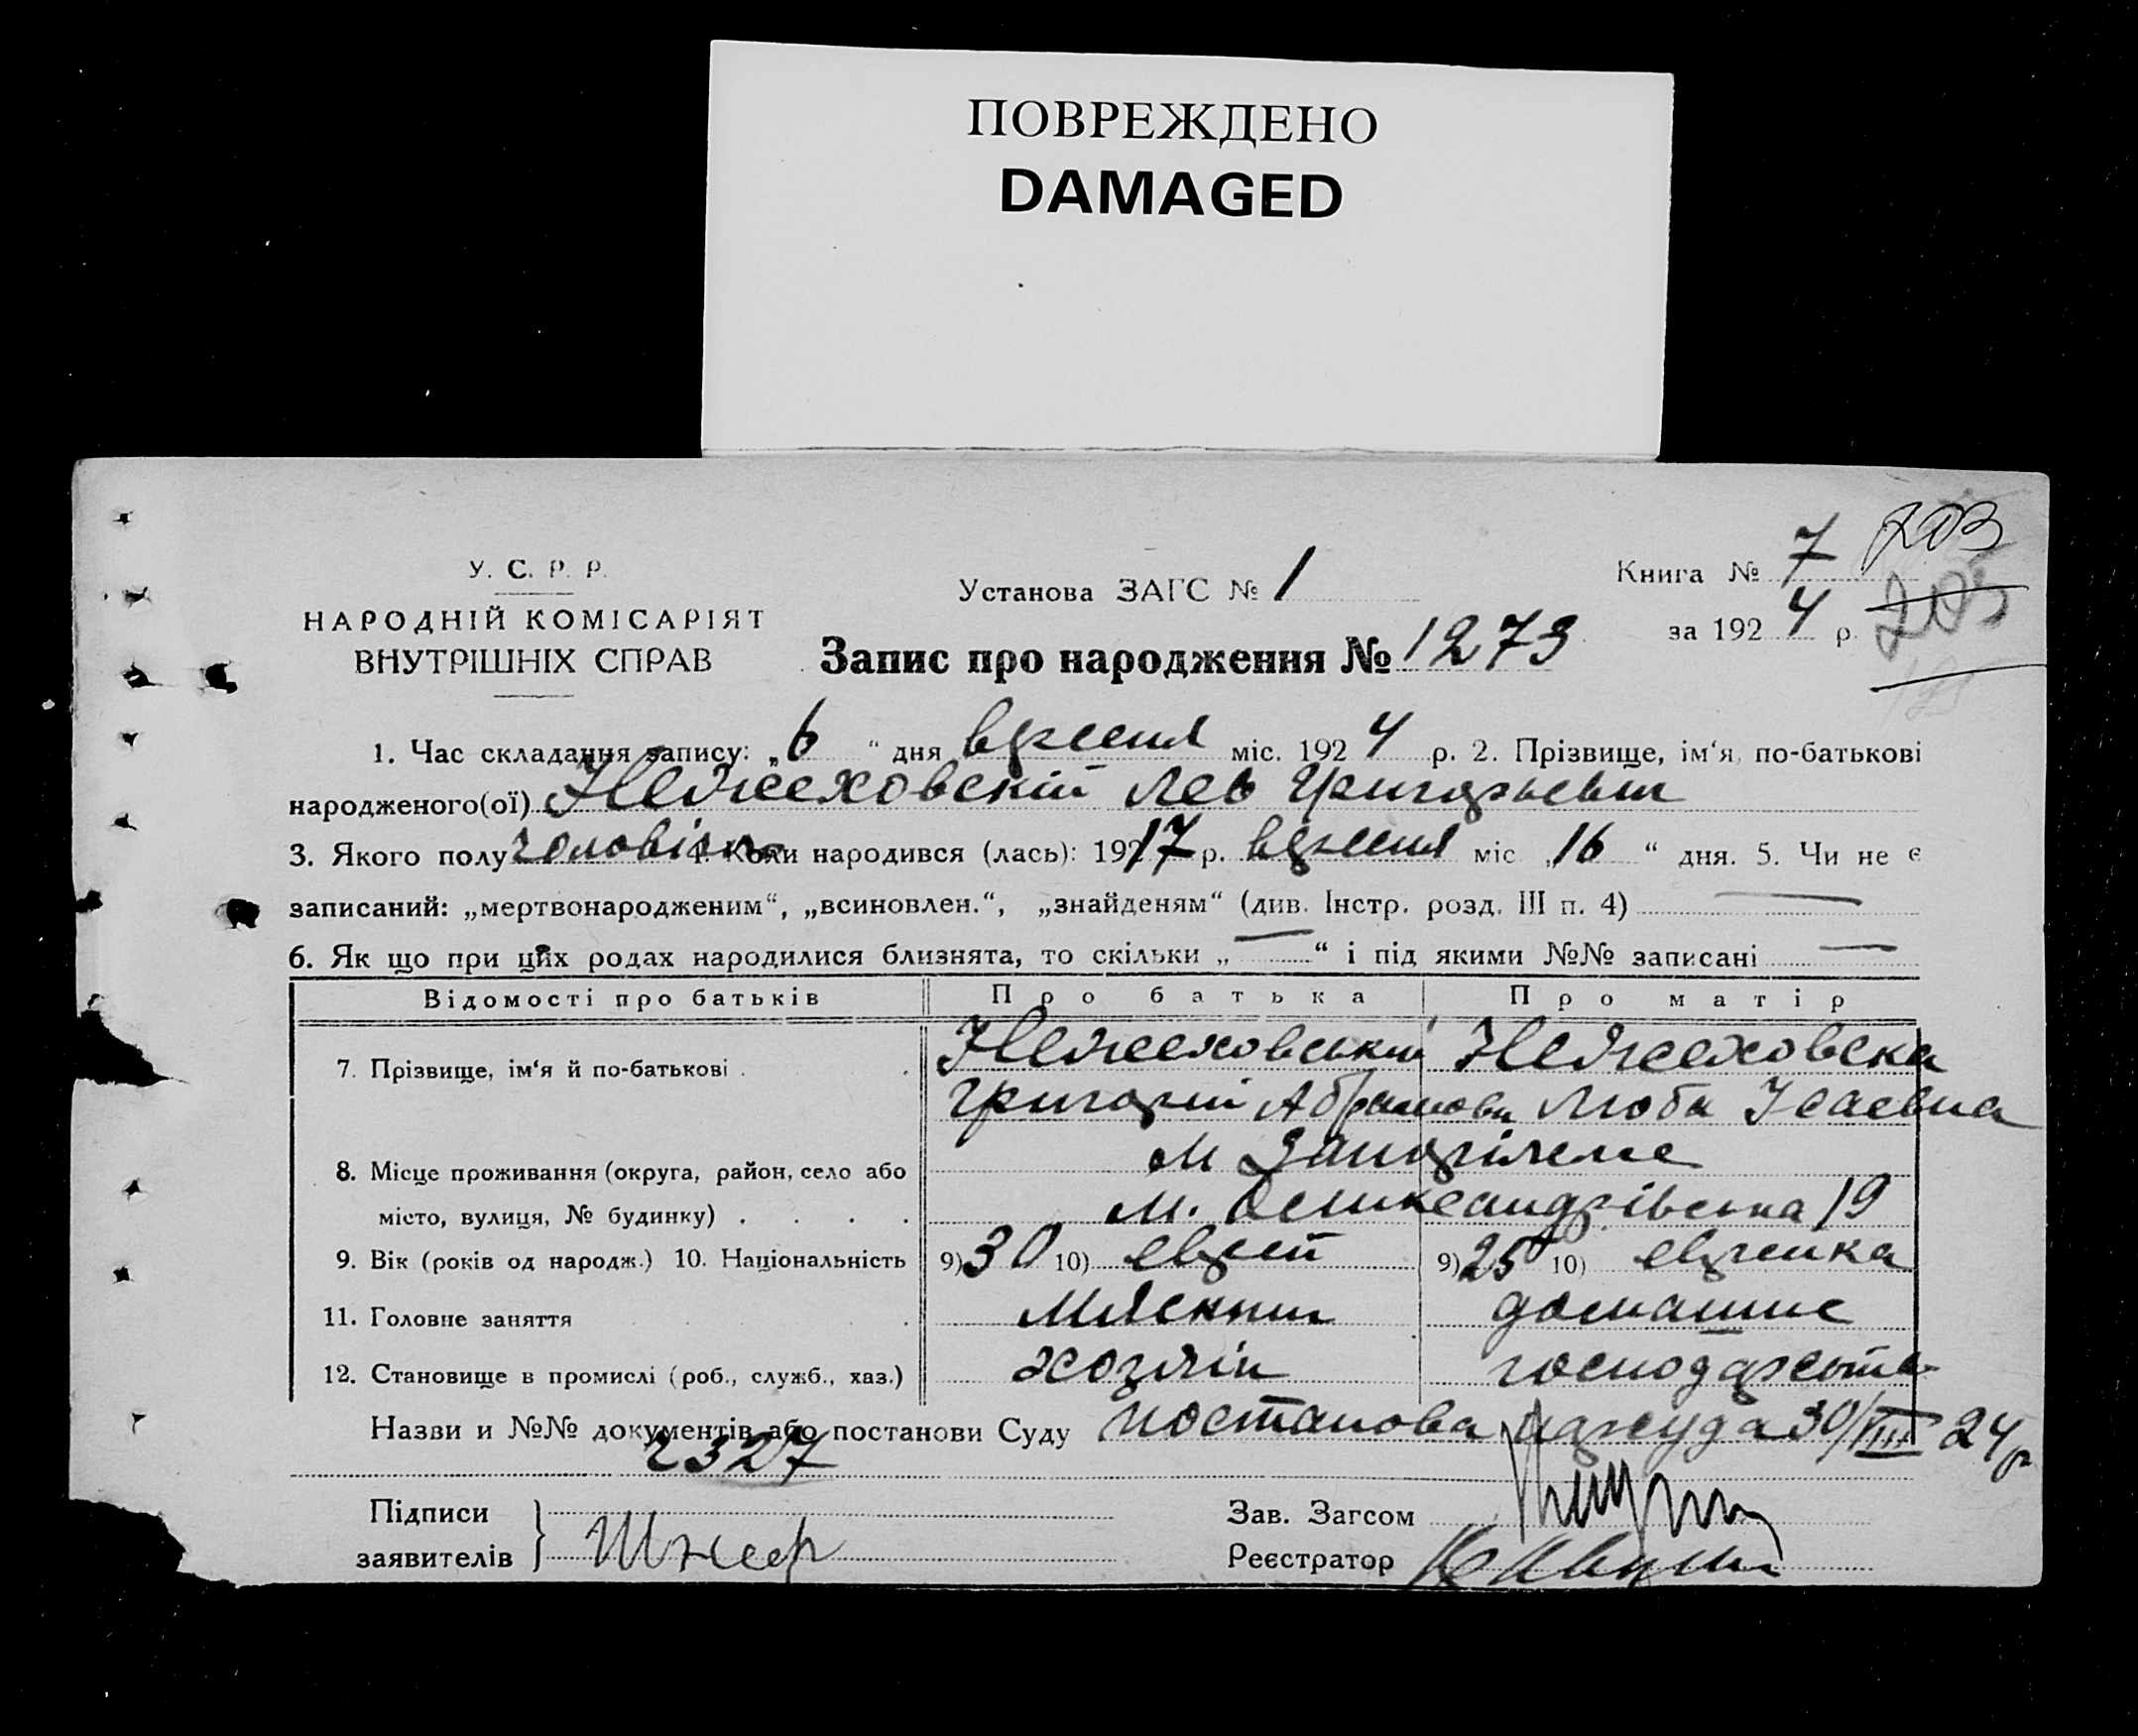 ПОВРЕЖДЕНО
DAMAGED
У. С. Р. Р.
НАРОДНІЙ КОМІСАРІЯТ
ВНУТРІШНІХ СПРАВ
Установа ЗАГС № 1
Запис про народження № 1273
Книга № 7 203
за 192 4 р. 205
1. Час складання запису: „6“ дня вересня міс. 192 4 р. 2. Прізвище, ім‘я, по-батькові
народженого(ої) Лев Григорьевич
3. Якого полу чоловіч. 4. Коли народився (лась): 1917 р. вересня міс „16“ дня. 5. Чи не є
записаний: „мертвонародженим“, „всиновлен.“, „знайденям“ (див. Інстр. розд. III п. 4) —
6. Як що при цих родах народилися близнята, то скільки „—“ і під якими №№ записані —
Відомості про батьків Про батька Про матір
7. Прізвище, ім‘я й по-батькові
Григорій Абрамови Люба Ісаевна
8. Місце проживання (округа, район, село або м Запоріжже
місто, вулиця, № будинку) Олександрівська 19
9. Вік (років од народж.) 10. Національність 9) 30 10) еврей 9) 25 10) еврейка
11. Головне заняття Мясник домашне
12. Становище в промислі (роб., служб., хаз.) хозяїн господарство
Назви и №№ документів або постанови Суду постанова нарсуда 30/VIII 24 р
2327
Підписи
заявителів
Зав. Загсом
Реєстратор